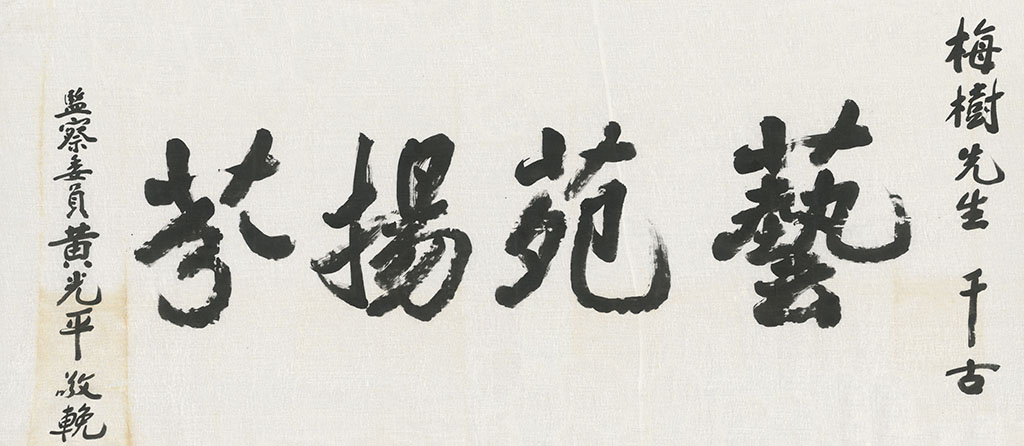 梅樹先生 千古
藝苑揚芬
監察委員黃光平敬輓